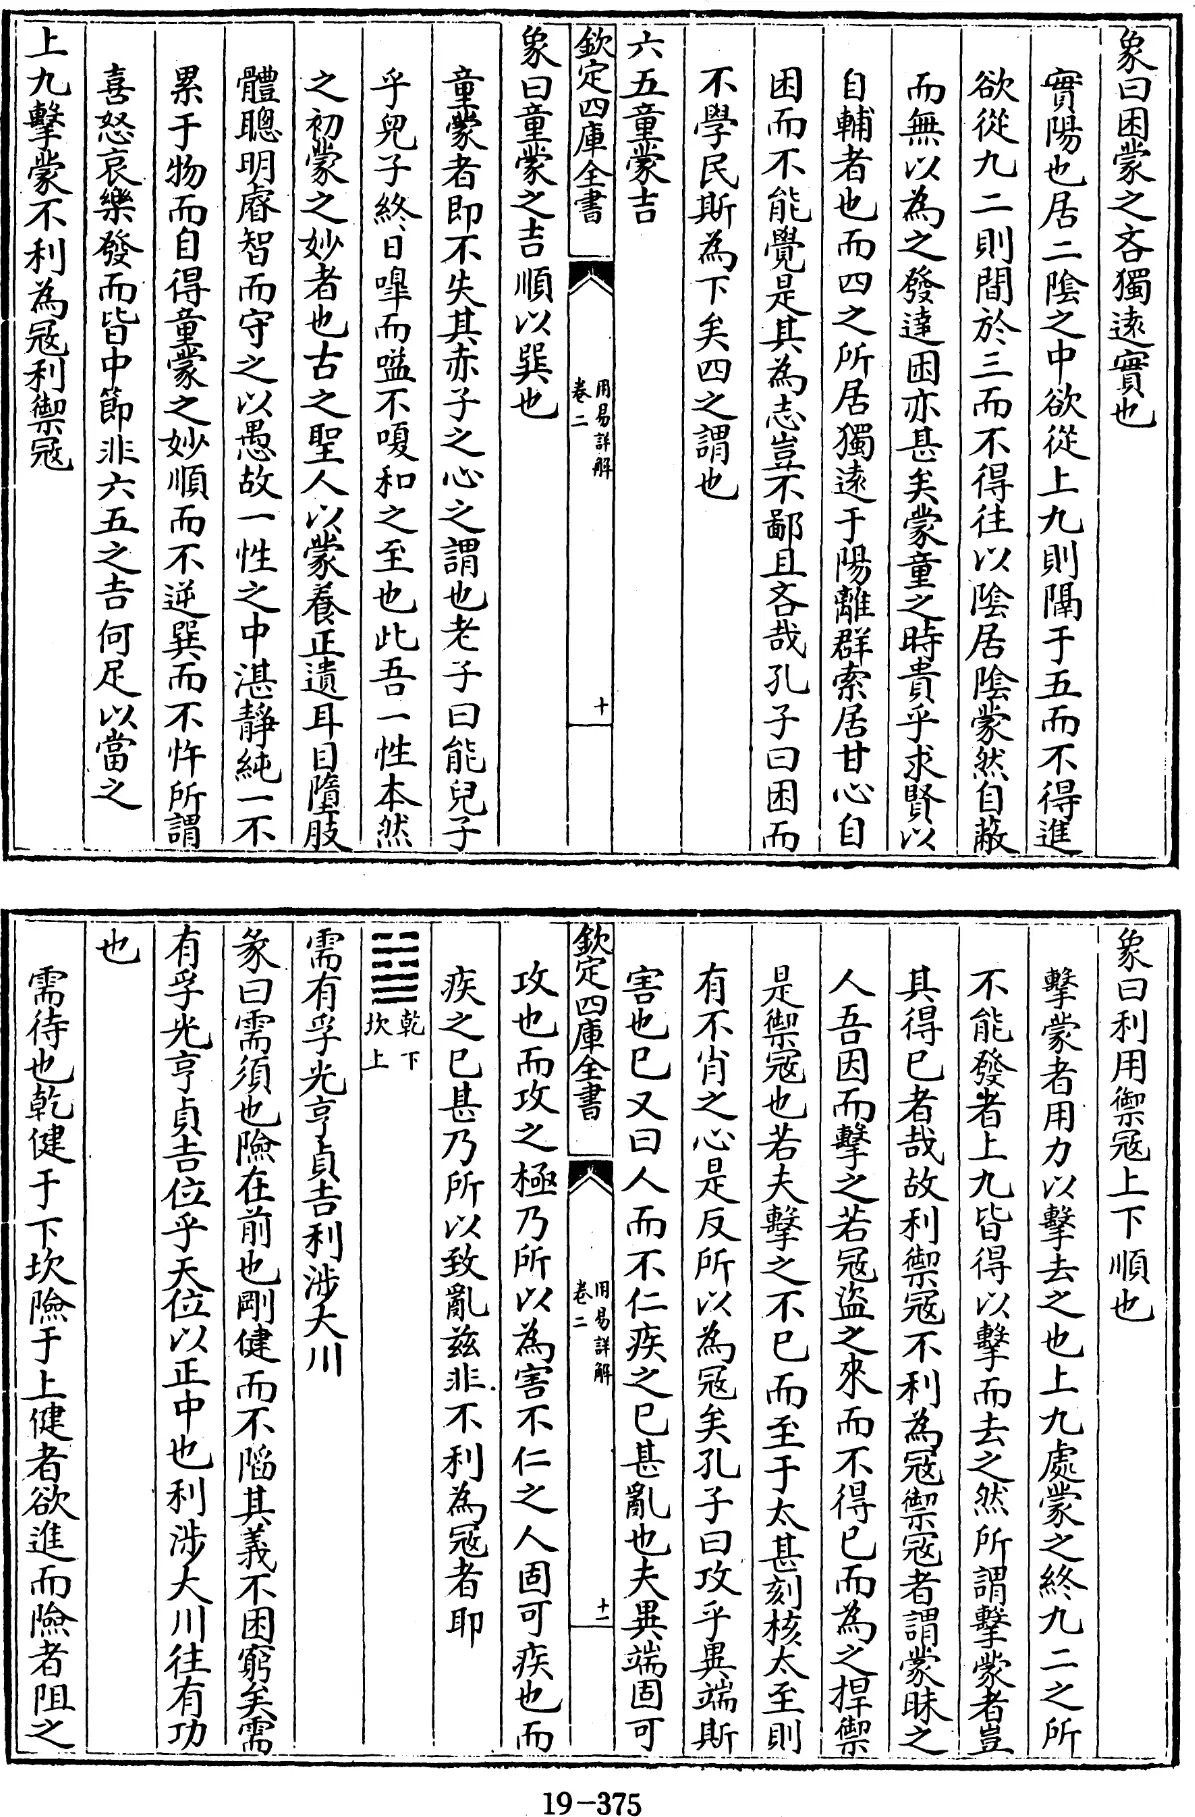 象曰困蒙之吝獨遠實也
實陽也居二陰之中欲從上九則隔于五而不得進
欲從九二則間於三而不得往以陰居陰蒙然自蔽
而無以為之發達困亦甚矣蒙童之時貴乎求賢以
自輔者也而四之所居獨遠于陽離群索居甘心自
困而不能覺是其為志豈不鄙且吝哉孔子曰困而
不學民斯為下矣四之謂也
六五童蒙吉
欽定四庫全書
用易詳解
卷二
十
象曰童蒙之吉順以巽也
童蒙者即不失其赤子之心之謂也老子曰能兒子
乎兒子終日嘷而嗌不嗄和之至也此吾一性本然
之初蒙之妙者也古之聖人以蒙養正遺耳目墮肢
體聰明睿智而守之以愚故一性之中湛靜純一不
累于物而自得童蒙之妙順而不逆巽而不忤所謂
喜怒哀樂發而皆中節非六五之吉何足以當之
上九擊蒙不利為冦利禦冦
象曰利用禦冦上下順也
擊蒙者用力以擊去之也上九處蒙之終九二之所
不能發者上九皆得以擊而去之然所謂擊蒙者豈
其得已者哉故利禦冦不利為冦禦冦者謂蒙昧之
人吾因而擊之若冦盜之來而不得已而為之捍禦
是禦冦也若夫擊之不已而至于太甚刻核太至則
有不肖之心是反所以為冦矣孔子曰攻乎異端斯
害也已又曰人而不仁疾之已甚亂也夫異端固可
欽定四庫全書
用易詳解
卷二
十一
攻也而攻之極乃所以為害不仁之人固可疾也而
疾之已甚乃所以致亂兹非不利為冦者耶
䷄乾下
坎上
需有孚光亨貞吉利涉大川
彖曰需須也險在前也剛健而不陷其義不困窮矣需
有孚光亨貞吉位乎天位以正中也利涉大川往有功
也
需待也乾健于下坎險于上健者欲進而險者阻之
19-375